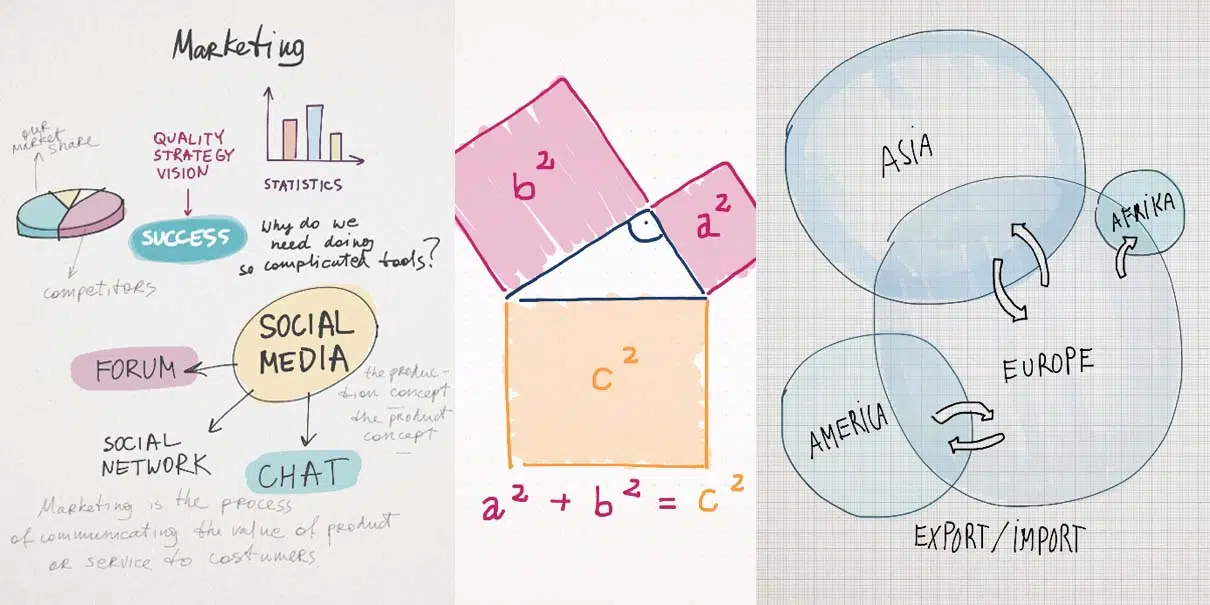 Marketing
our
market
share
QUALITY
STRATEGY
VISION
STATISTICS
SUCCESS
Why do we
need doing
so complicated tools?
competitors
SOCIAL
MEDIA
FORUM
the produc-
tion concept
the product
concept
SOCIAL
NETWORK
CHAT
Marketing is the process
of communicating the value of product
or service to costumers.
b²
a²
c²
a² + b² = c²
ASIA
AFRIKA
EUROPE
AMERICA
EXPORT/IMPORT